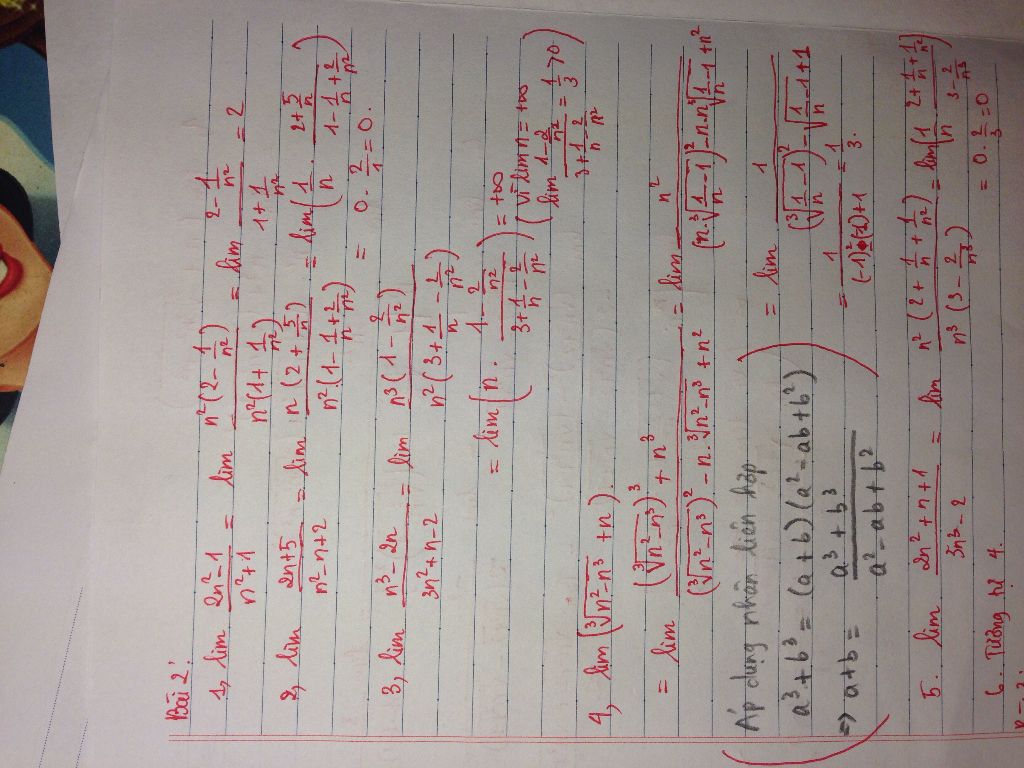 Bài 2:
1, lim (2n²-1)/(n²+1) = lim (n²(2-1/n²))/(n²(1+1/n²)) = lim (2-1/n²)/(1+1/n²) = 2
2, lim (2n+5)/(n²-n+2) = lim (n(2+5/n))/(n²(1-1/n+2/n²)) = lim(1/n . (2+5/n)/(1-1/n+2/n²))
= 0 . 2/1 = 0.
3, lim (n³-2n)/(3n²+n-2) = lim (n³(1-2/n²))/(n²(3+1/n-2/n²))
= lim(n . (1-2/n²)/(3+1/n-2/n²)) = +∞ (vì lim n = +∞
lim (1-2/n²)/(3+1/n-2/n²) = 1/3 > 0)
4, lim(∛(n²-n³) + n).
= lim ((∛(n²-n³))³ + n³)/((∛(n²-n³))² - n.∛(n²-n³) + n²) = lim n²/((n.∛(1/n-1))² - n.n∛(1/n-1) + n²
Áp dụng nhân liên hợp
= lim 1/((∛(1/n-1))² - ∛(1/n-1) + 1
a³+b³ = (a+b)(a²-ab+b²)
= 1/((-1)²-(-1)+1) = 1/3.
=> a+b = (a³+b³)/(a²-ab+b²)
5. lim (2n²+n+1)/(3n³-2) = lim (n²(2+1/n+1/n²))/(n³(3-2/n³)) = lim(1/n (2+1/n+1/n²)/(3-2/n³))
= 0 . 2/3 = 0
6. Tương tự 4.